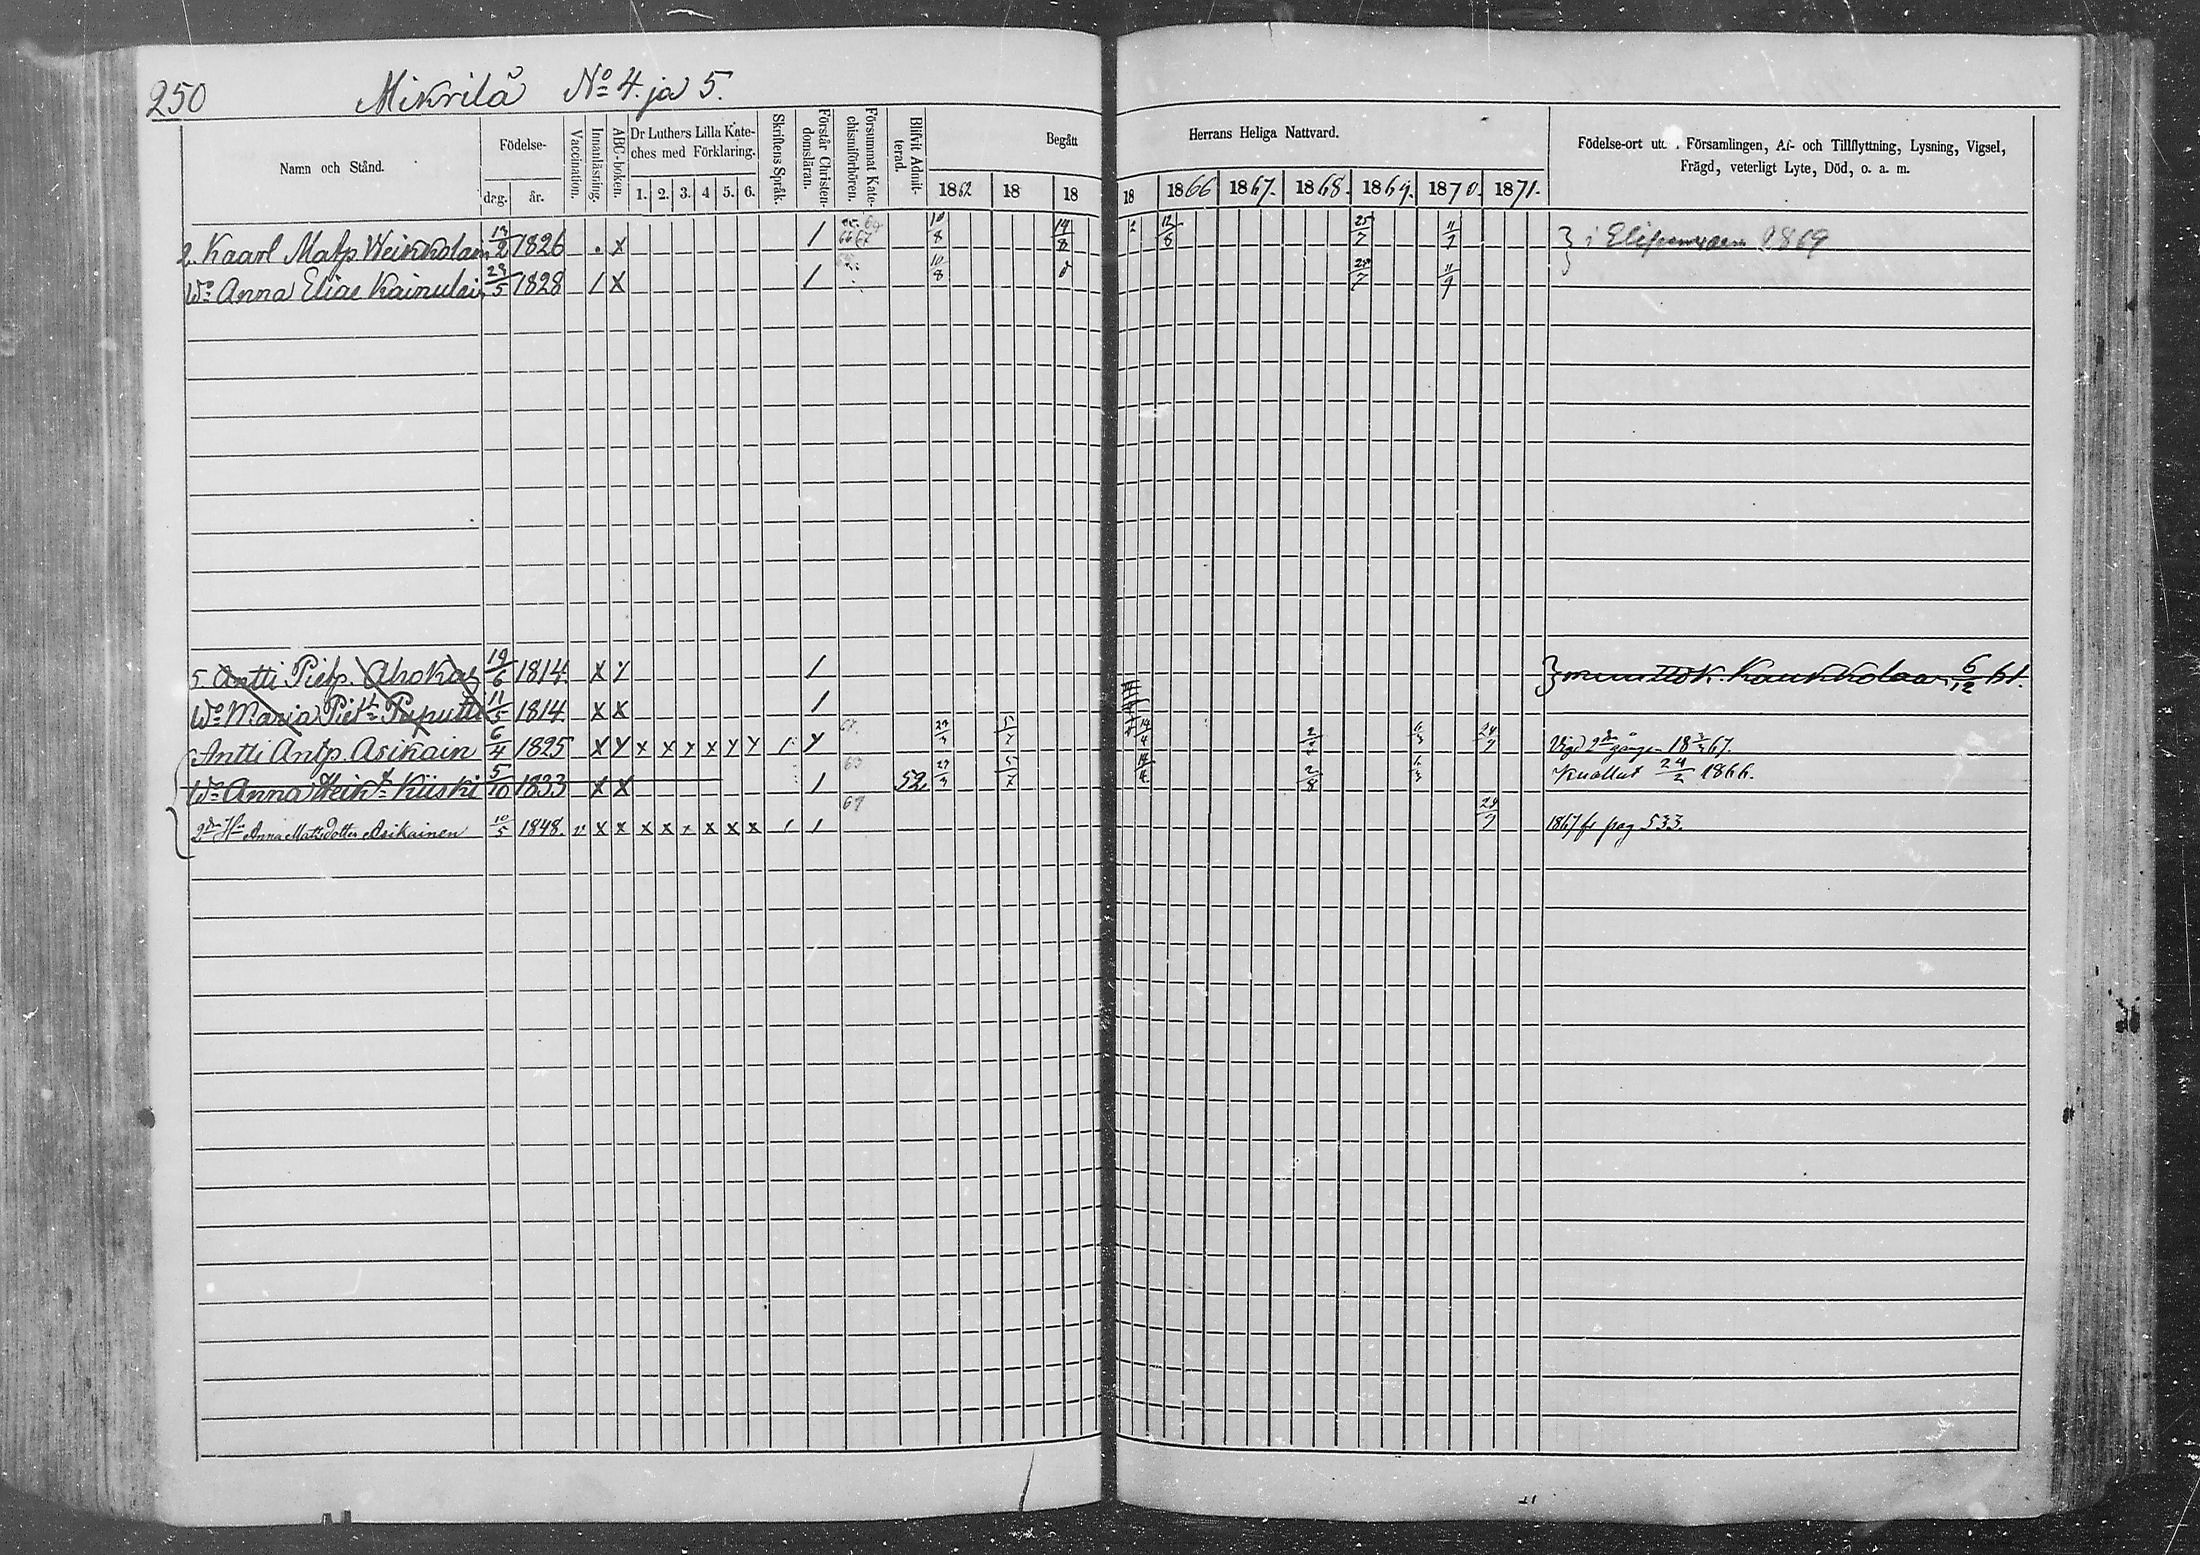 250 Mikrilä No 4. ja 5.
Namn och Stånd.
Födelse-
dag. år.
Vaccination.
Innanläsning.
ABC-boken.
Dr Luthers Lilla Kate-
ches med Förklaring.
1. 2. 3. 4 5. 6.
Skriftens Språk.
Förstår Christen-
domsläran.
Försummat Kate-
chismiförhören.
Blifvit Admit-
terad.
Begått Herrans Heliga Nattvard.
1862 18 18 18 1866 1867. 1868. 1869. 1870. 1871.
Födelse-ort utom Församlingen, Af- och Tillflyttning, Lysning, Vigsel,
Frägd, veterligt Lyte, Död, o. a. m.
2. Kaarl Matp. Weikkolain 19/2 1826 . x / 10/8 19/8 12/8 25/7 11/9 } i 1869
Wo Anna Elias Kainulain 29/5 1828 / x / 10/8 25/7 11/9
5. Antti Pietp. Ahokas 19/6 1814 x y / } muuttok. Kaukkolaan 6/12 61.
Wo Maria Piet. Paputti 11/5 1814 x x /
Antti Antp. Asikain 6/4 1825 x y x x y x y y / y 67. 27/3 5/7 14/4 6/3 24/9 Vigd 2dra gången 18 67.
Wo Anna Heik. Kiiski 5/10 1833 x x / 52. 27/3 5/7 14/4 2/8 6/3 Kuollut 24/2 1866.
2dra Hu Anna Mattsdotter Asikainen 10/5 1848. v x x x x x x x x / / 69 24/9 1867 fr pag 533.